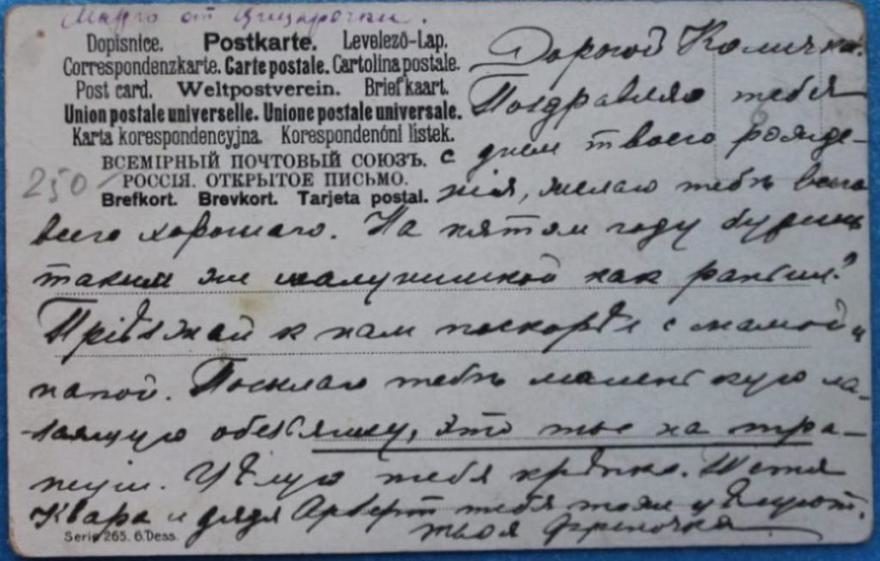 от
Dopisnice. Postkarte. Levelező-Lap.
Correspondenzkarte. Carte postale. Cartolina postale.
Post card. Weltpostverein. Briefkaart.
Union postale universelle. Unione postale universale.
Karta korespondencyjna. Korespondenční listek.
ВСЕМІРНЫЙ ПОЧТОВЫЙ СОЮЗЪ.
РОССІЯ. ОТКРЫТОЕ ПИСЬМО.
Brefkort. Brevkort. Tarjeta postal.
250
Дорогой Количка.
Поздравляю тебя
с днем твоего рожде-
нія, желаю тебѣ всего
всего хорошаго. На пятом году будешь
таким же шалунишкой как раньше?
Пріѣзжай к нам поскорѣе с мамой и
папой. Посылаю тебѣ маленькую ла-
зающую обезьяшку, это тыс на тра-
пеціи. Цѣлую тебя крѣпко. Тетя
Клара и дядя тебя тоже цѣлуют.
твоя
Serie 265. 6. Dess.